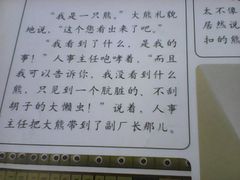 “我是一只熊。”大熊礼貌
地说，“这个您看出来了吧。”
“我看到了什么，是我的
事！”人事主任咆哮着，“而且
我可以告诉你，我没看到什么
熊，只见到一个肮脏的、不刮
胡子的大懒虫！”说着，人事
主任把大熊带到了副厂长那儿。
太不像
居然说
扣的熊